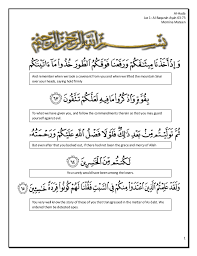 Al-Huda
Juz 1- Al Baqarah: Ayah 63-73
بِسْمِ اللَّهِ الرَّحْمَٰنِ الرَّحِيمِ
وَإِذْ أَخَذْنَا مِيثَٰقَكُمْ وَرَفَعْنَا فَوْقَكُمُ ٱلطُّورَ خُذُوا۟ مَآ ءَاتَيْنَٰكُم
And remember when we took a covenant from you and when we lifted the mountain above
over your heads, saying hold firmly
بِقُوَّةٍ وَٱذْكُرُوا۟ مَا فِيهِ لَعَلَّكُمْ تَتَّقُونَ
To what we have given you, and follow the commandments therein so that you may guard
yourself against evil.
ثُمَّ تَوَلَّيْتُم مِّنۢ بَعْدِ ذَٰلِكَ فَلَوْلَا فَضْلُ ٱللَّهِ عَلَيْكُمْ وَرَحْمَتُهُۥ
But even after that you backed out, if there had not been the grace and mercy of Allah
لَكُنتُم مِّنَ ٱلْخَٰسِرِينَ ٦٤
You surely would have been among the losers.
وَلَقَدْ عَلِمْتُمُ ٱلَّذِينَ ٱعْتَدَوْا۟ مِنكُمْ فِى ٱلسَّبْتِ فَقُلْنَا لَهُمْ كُونُوا۟ قِرَدَةً خَٰسِـِٔينَ ٦٥
You very well know the story of those of you that transgressed in the matter of the Sabbath. We
ordered them be detested apes
1